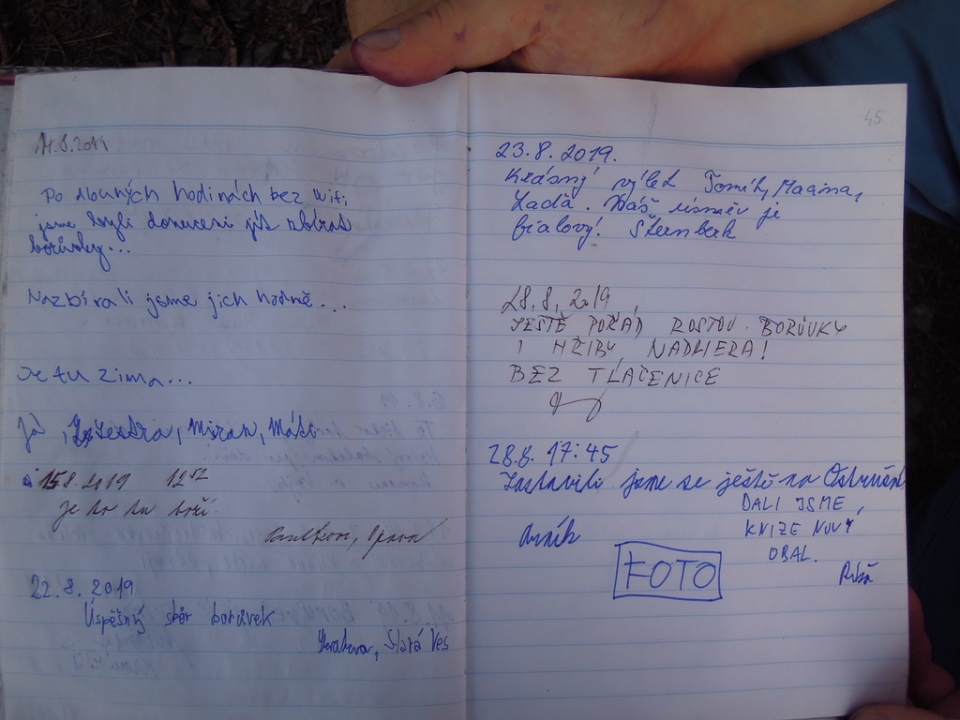 14.8.2019
Po dlouhých hodinách bez Wifi
jsme byli donuceni jít sbírat
borůvky...
Nazbírali jsme jich hodně...
Je tu zima...
Já, Miran,
15.8.2019 12
je to tu boží
Opava
22.8.2019
Úspěšný sběr borůvek
Stará Ves
45
23.8.2019.
Krásný výlet Tomík,
Laďa. Náš úsměv je
fialový! Šternberk
28.8.2019
JEŠTĚ POŘÁD ROSTOU BORŮVKY
I HŘIBY, NADHERA!
BEZ TLAČENICE
28.8. 17:45
Zastavili jsme se ještě na
DALI JSME
KNIZE NOVÝ
OBAL.
FOTO